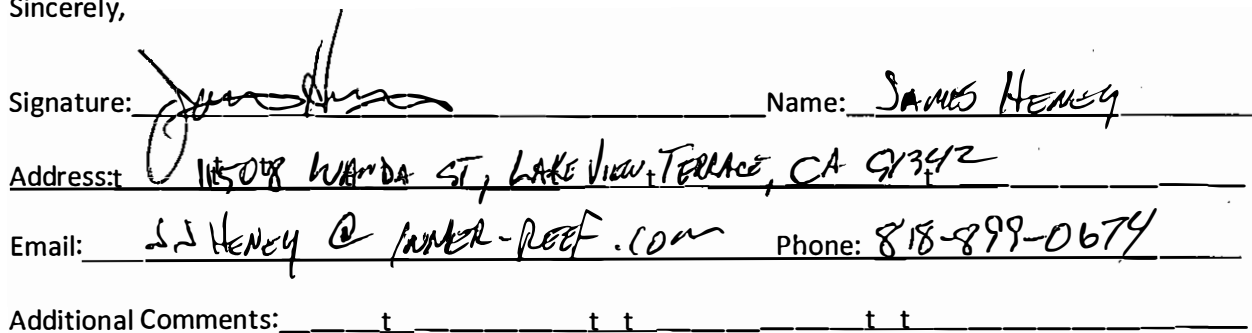 Sincerely,
Signature: Name: JAMES HENEY
Address:t 11508 WANDA ST, LAKE VIEW t TERRACE, CA 91342 t
Email: JJHENEY @ INNER-REEF.COM Phone: 818-899-0674
Additional Comments: t t t t t